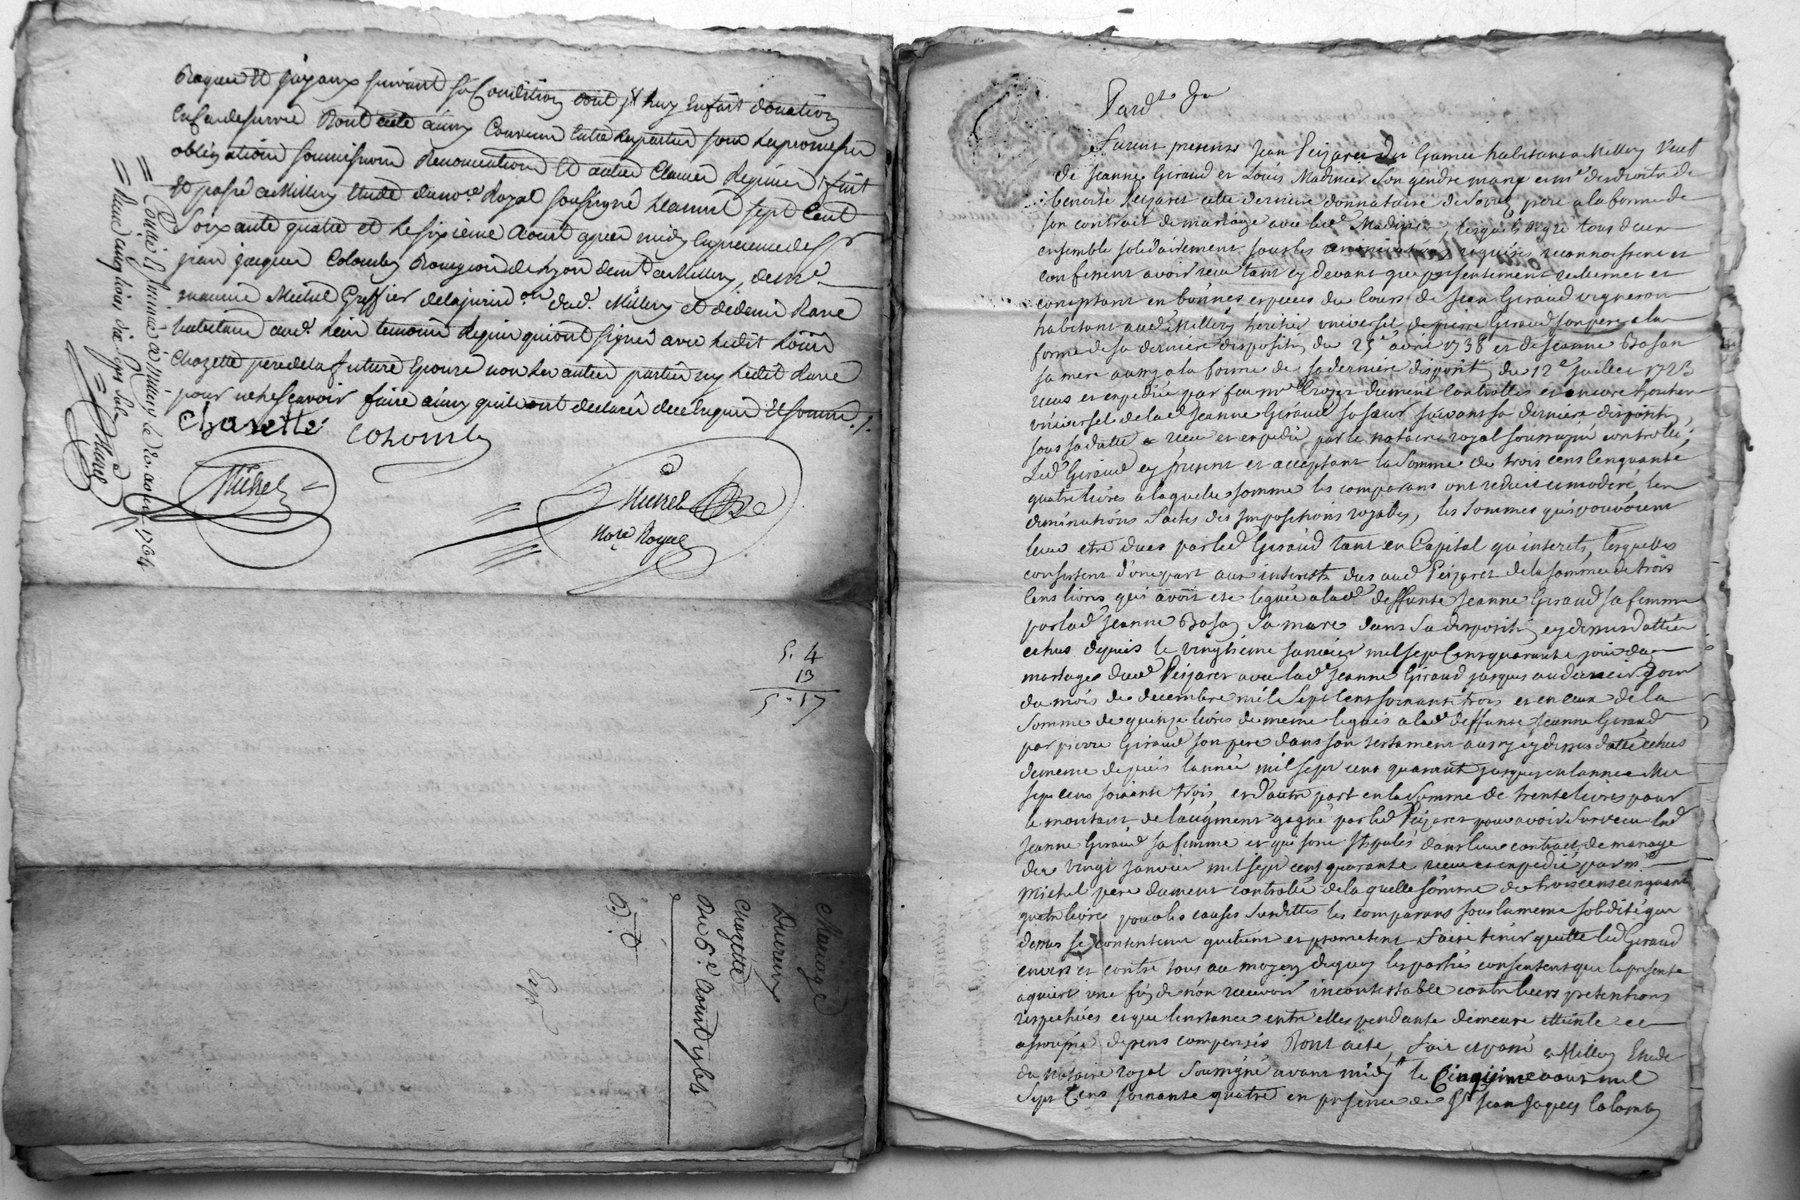 Bagues et joyaux suivant sa Condition dont Il luy en fait donation
En Cas de survie Dont acte ainsy Convenu Entre les parties sous les promesses
obligations soumissions Renonciations Et autres Clauses Requises fait
Et passé a Millery Etude du no.re Royal soussigné L'an mil sept Cent
Soixante quatre et le sixieme aoust apres midy En presence de Sr
jean jacques Colomby Bourgeois de Lyon demt a Millery, de me
maurice Michel Greffier de la jurid.on dud. Millery et de denis
habitans aud. lieu temoins Requis qui ont signé avec ledit
Chazette pere de la future Epouse non les autres parties ny ledit
pour ne le sçavoir faire ainsy qu'ils ont declaré de ce Enquis et sommé ./.
Chazette Colomby
Michel
Michel
No.re Royal
Controllé à Millery le 20 aoust 1764
Michel
5. 4
13
5. 17
Mariage
Chazette
Du 6e Aoust 1764
Exp.
Par dt. Jn
Furent presents Jean Peyzaret dit Gamet habitant a Millery Veuf
de Jeanne Giraud et Loüis Madinier son gendre mary et me des droits de
benoite Peyzaret cette derniere donnataire de son pere a la forme de
son contrat de mariage avec led. Madinier, lesquels de gré tous deux
ensemble solidairement sous les renonciations requises reconnoissent et
confessent avoir reçu tant cy devant que presentement réelement et
comptant en bonnes especes du Cours de Jean Giraud vigneron
habitant aud. Millery heritier universel de pierre Giraud son pere a la
forme de sa derniere disposition du 25e avril 1738 et de Jeanne Basan
sa mere aussy a la forme de sa derniere disposition du 12e Juillet 1723
reçus et expediés par feu me Croyer düement Controllés et encore heritier
universel de lad. Jeanne Giraud sa sœur suivant sa derniere disposition
sous sa datte reçu et expedié par le notaire royal soussigné controllé;
Led. Giraud cy present et acceptant la Somme de trois cens Cinquante
quatre livres a laquelle somme les comparans ont reduit et moderé, les
diminutions faites des Impositions royales, les sommes qui pouvoient
leur etre dues par led. Giraud tant en Capital qu'interets, lesquelles
consistent d'une part aux interets dus aud. Peyzaret de la somme de trois
Cens livres qui avoit ete leguée a lad. deffunte Jeanne Giraud sa femme
par lad. Jeanne Basan sa mere dans sa disposition cy dessus dattée
echus depuis le vingtieme janvier mil sept Cens quarante jour du
mariage dud. Peyzaret avec lad. Jeanne Giraud jusques au dernier Jour
du mois de decembre mil Sept Cens soixante trois et en ceux de la
somme de quinze livres de meme legués a lad. deffunte Jeanne Giraud
par pierre Giraud son pere dans son testament aussy cy dessus datté echus
de meme depuis l'année mil sept cens quarante jusques en l'année Mil
sept cens soixante trois, et d'autre part en la Somme de trente livres pour
le montant de l'augment gagné par led. Peyzaret pour avoir survecu lad.
Jeanne Giraud sa femme et qui sont stipulés dans leur contract de mariage
du vingt janvier mil sept cens quarante reçu et expedié par me
Michel pere dument controllé de laquelle somme de trois cens cinquante
quatre livres pour les causes susdittes les comparans sous la meme solidité que
dessus se contentent quittent et promettent faire tenir quitte led. Giraud
envers et contre tous au moyen de quoy les parties consentent que la presente
aquiert une fin de non recevoir incontestable contre leurs pretentions
respectives et que l'instance entre elles pendante demeure etteinte et
assoupie depens compensés Dont acte, fait et passé a Millery Etude
du notaire royal soussigné avant midy le Cinquieme aoust mil
Sept Cens soixante quatre en presence de Sr Jean Jaques Colomby